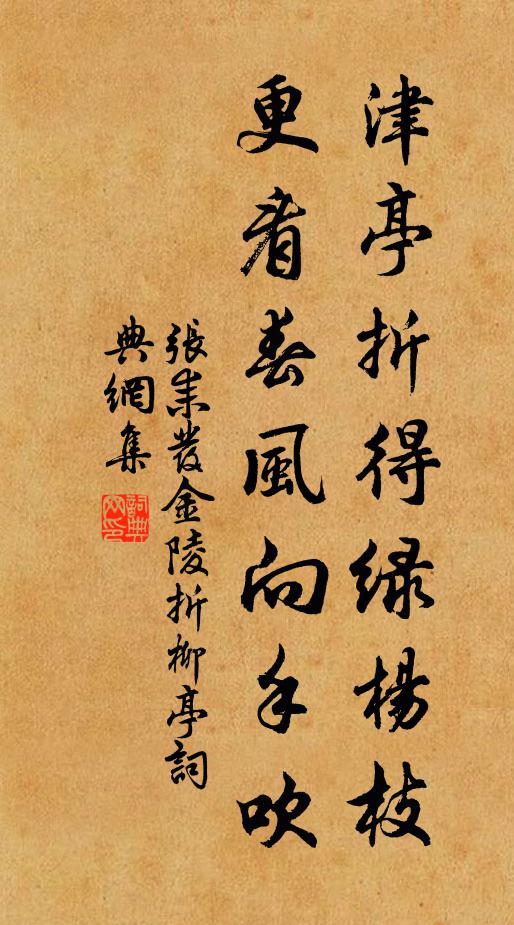 津亭折得绿楊枝
更看春風向手吹
張耒發金陵折柳亭詞
典網集
詞典網印